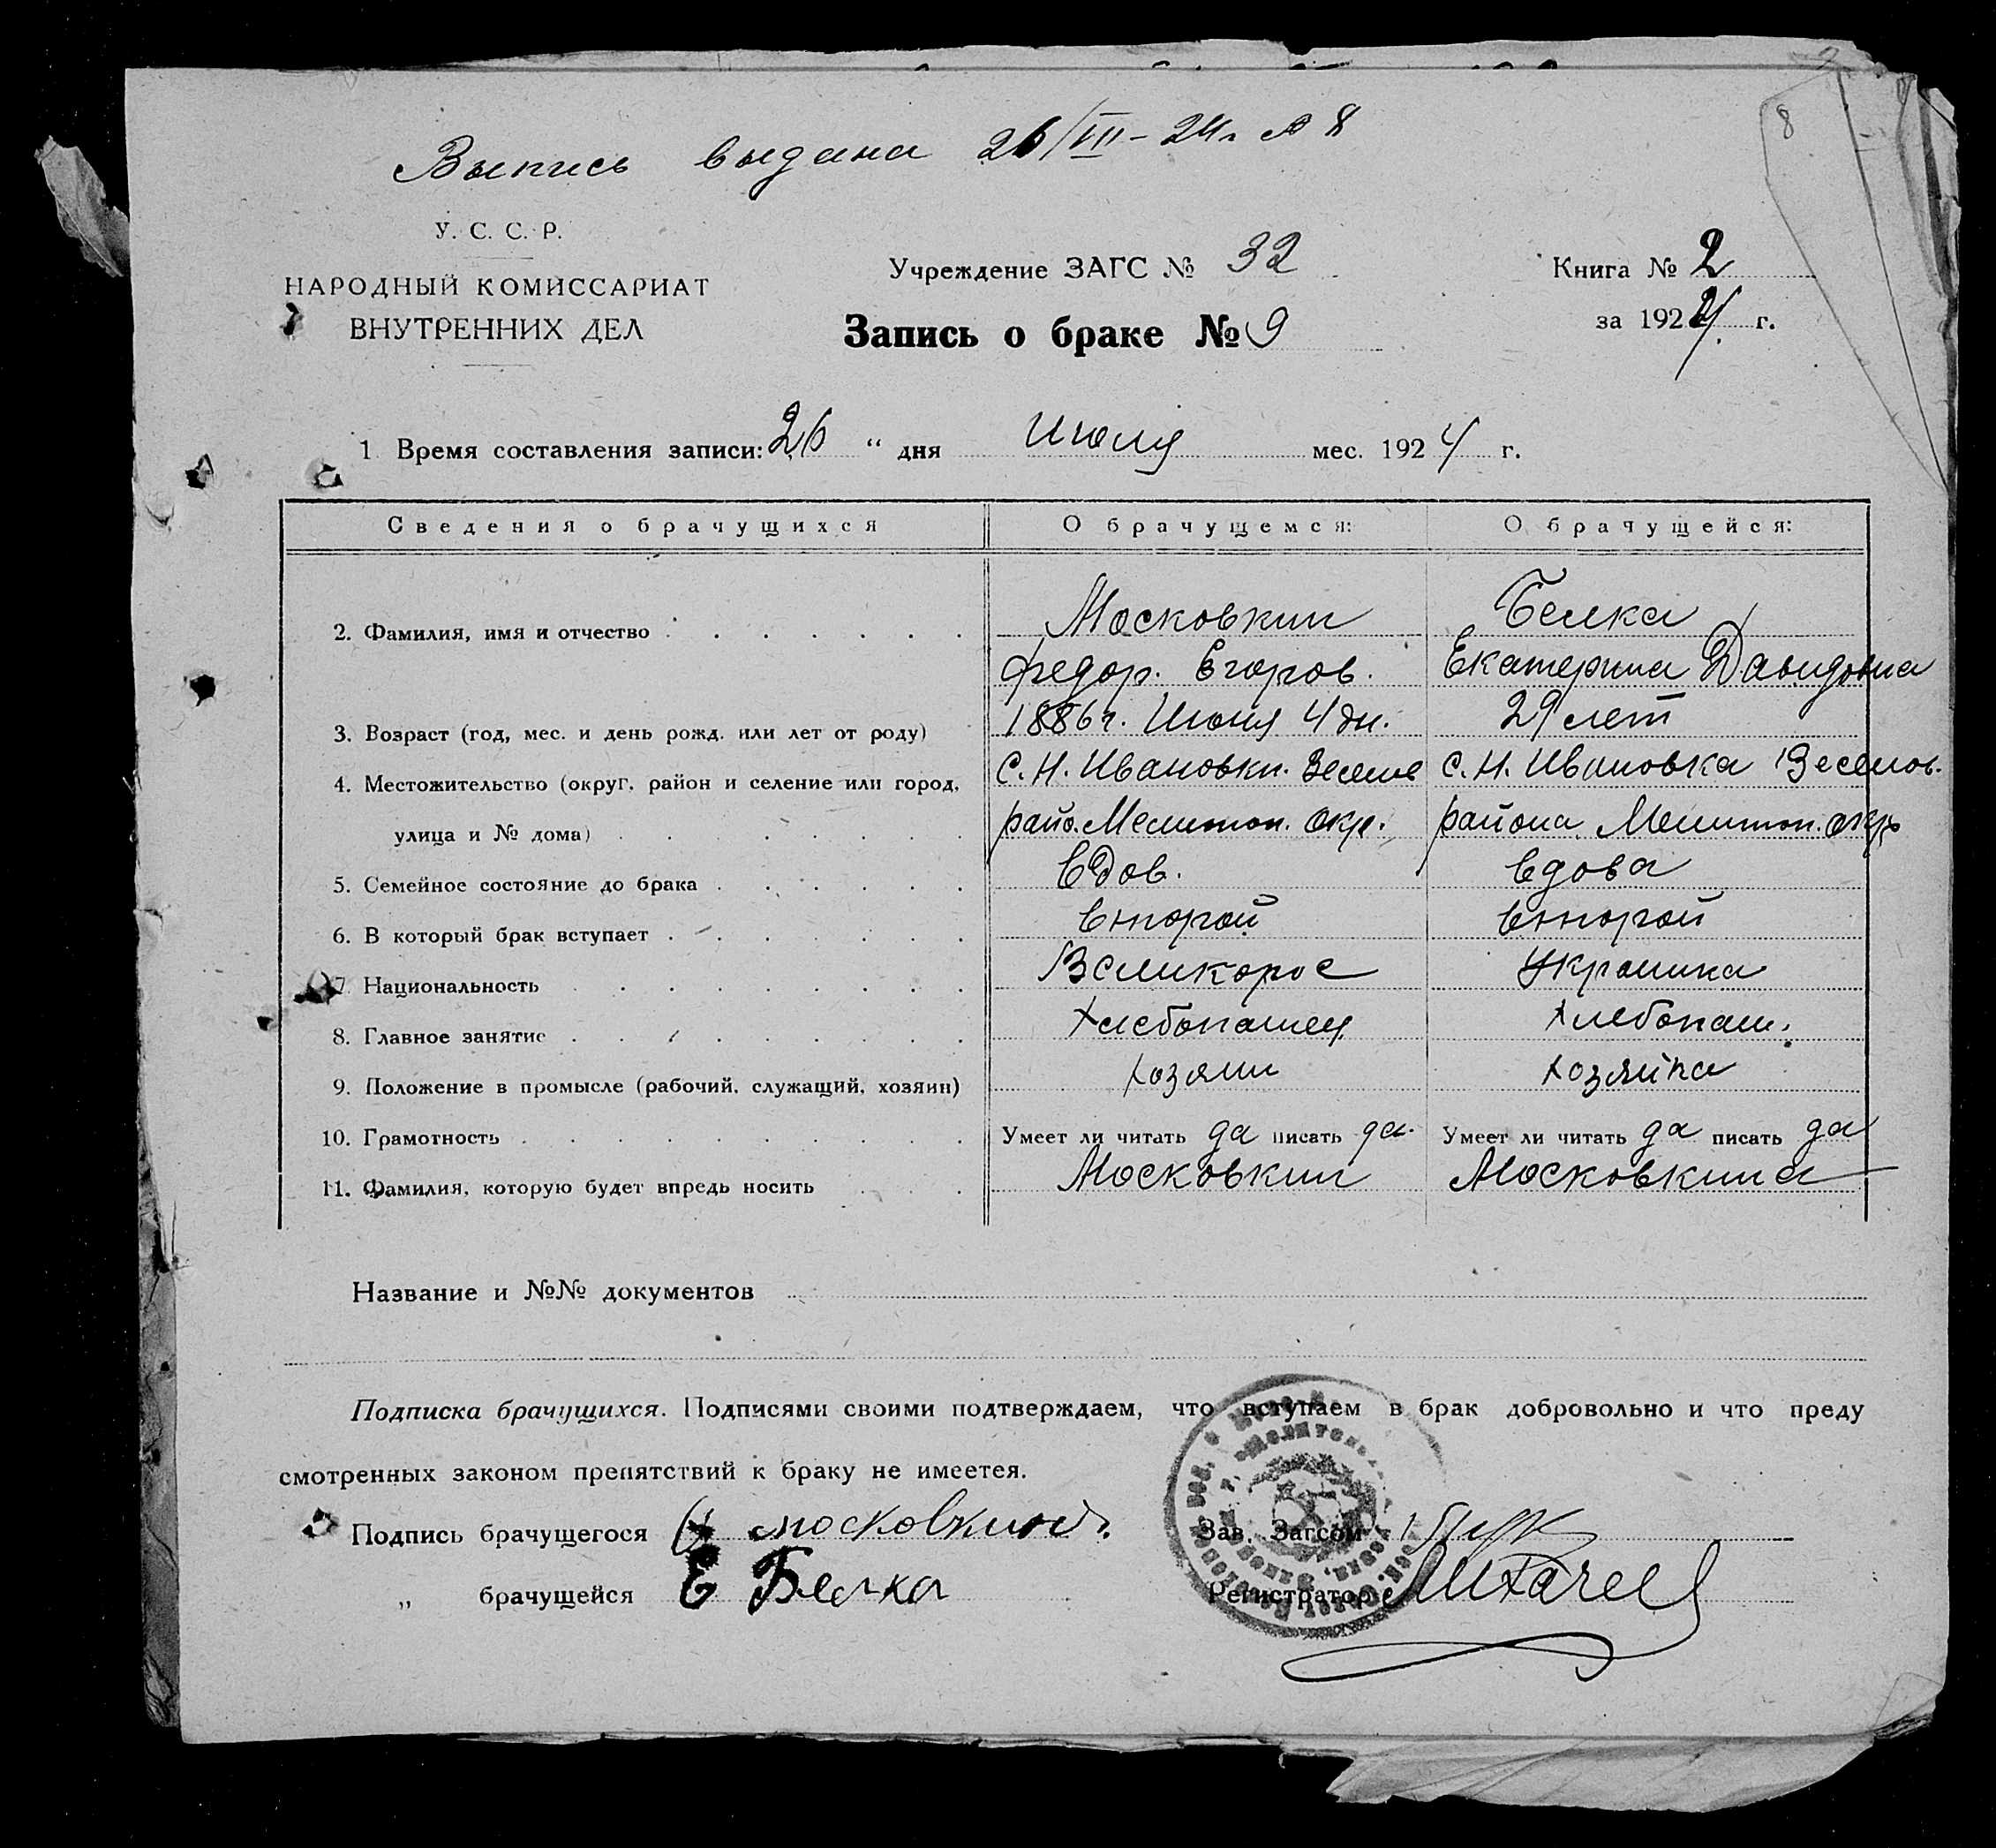 8
Выпись выдана 26/VII-24г № 8
У. С. С. Р.
НАРОДНЫЙ КОМИССАРИАТ
ВНУТРЕННИХ ДЕЛ
Учреждение ЗАГС № 32
Запись о браке № 9
Книга № 2
за 1924 г.
1 Время составления записи: 26 “ дня Июля мес. 1924 г.
Сведения о брачущихся О брачущемся: О брачущейся:
2. Фамилия, имя и отчество Московкин Белка
Федор. Егоров. Екатерина Давидовна
3. Возраст (год, мес. и день рожд. или лет от роду) 1886г. Июня 4 дн. 29 лет
4. Местожительство (округ, район и селение или город, с. Н. Ивановкн. Веселов с. Н. Ивановка Веселов.
улица и № дома) райо. Мелитоп. окр. района Мелитоп. окр
5. Семейное состояние до брака вдов. вдова
6. В который брак вступает второй второй
7. Национальность Великорос Украинка
8. Главное занятие Хлебопашец Хлебопаш.
9. Положение в промысле (рабочий, служащий, хозяин) хозяин хозяйка
10. Грамотность Умеет ли читать да писать да. Умеет ли читать да писать да
11. Фамилия, которую будет впредь носить Московкин Московкина
Название и №№ документов
Подписка брачущихся. Подписями своими подтверждаем, что вступаем в брак добровольно и что преду
смотренных законом препятствий к браку не имеется.
Подпись брачущегося московкин
Зав. Загсом
„ брачущейся Е Белка
Регистратор Лихачев